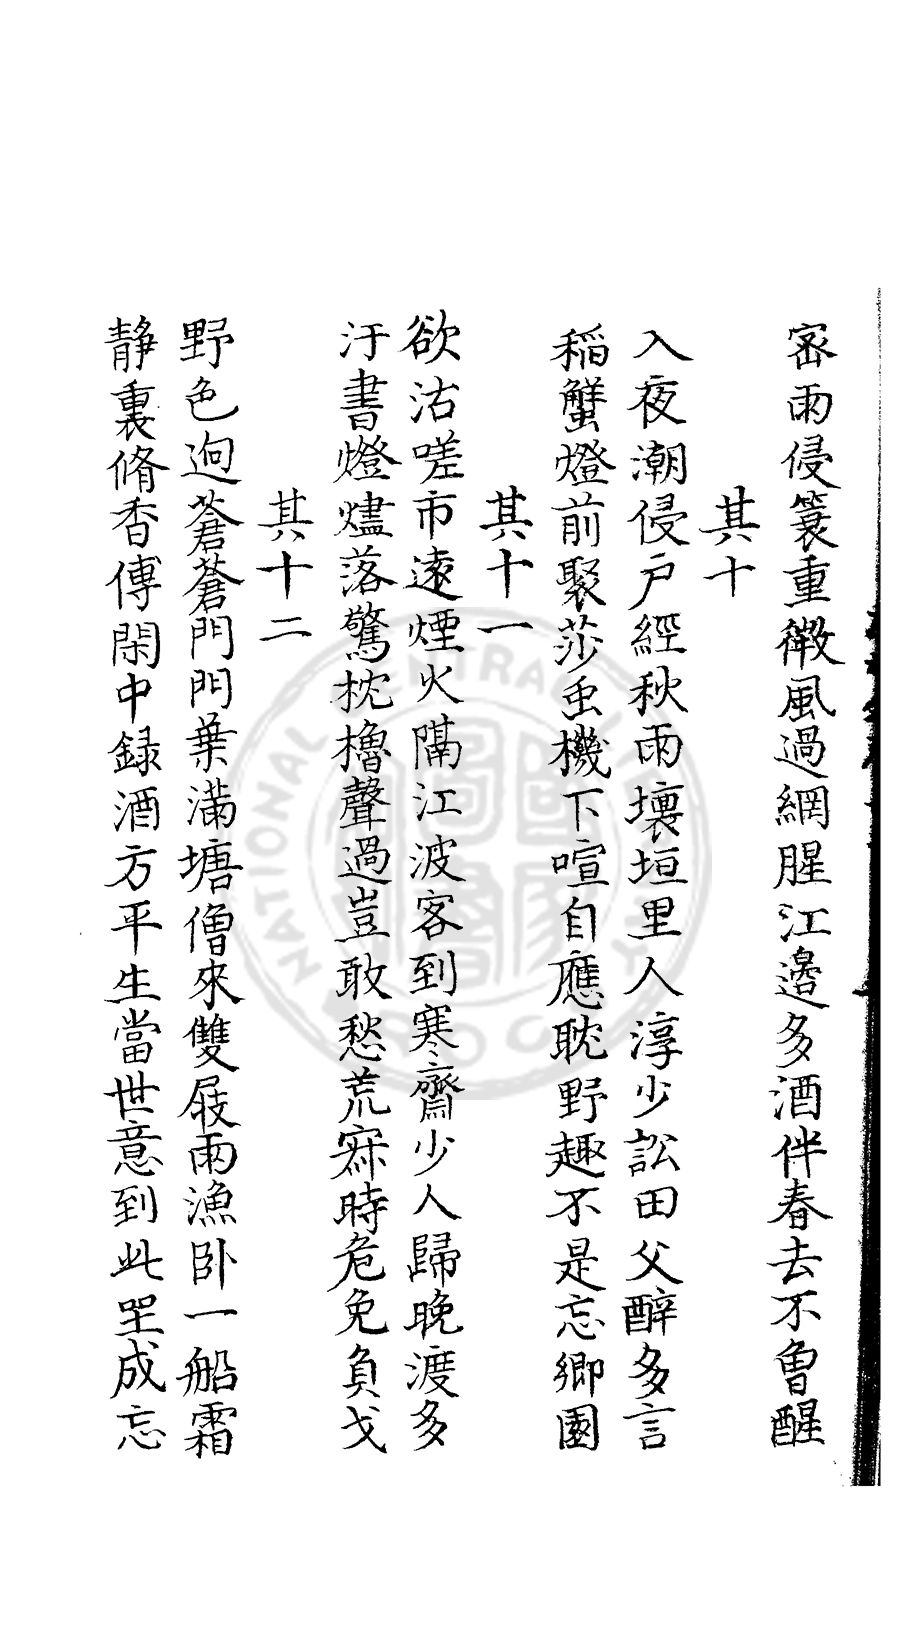 宻雨侵簑重微風過網腥江邊多酒伴春去不曾醒
其十
入夜潮侵戶經秋雨壞垣里人淳少訟田父醉多言
稻蟹燈前聚莎虫機下喧自應耽野趣不是忘鄉園
其十一
欲沽嗟市遠煙火隔江波客到寒齋少人歸晚渡多
汙書燈燼落驚枕櫓聲過豈敢愁荒寂時危免負戈
其十二
野色逈蒼蒼門門葉滿塘僧來雙屐雨漁卧一船霜
静裏脩香傳閑中録酒方平生當世意到此㘴成忘
NATIONAL CENTRAL LIBRARY
R.O.C.